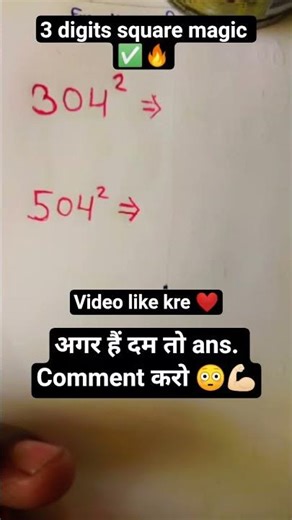 3 digits square magic
✅🔥
304² ⇒
504² ⇒
Video like kre ❤️
अगर हैं दम तो ans.
Comment करो 😳💪🏻